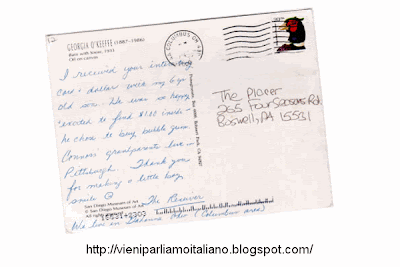 GEORGIA O'KEEFFE (1887-1986)
Oil on canvas
I received your interesting
card & dollar with my 6 yr
old son. He was so happy
excited to find $1.00 inside-
he chose to buy bubble gum.
Connors' grandparents live in
Pittsburgh. Thank you
for making a little boy
smile ☺ The Receiver
We live in Ohio (Columbus area)
San Diego Museum of Art
© San Diego Museum of Art
All rights
COLUMBUS OH
The Placer
255 Four Seasons Rd.
Boswell, PA 15531
http://vieniparliamoitaliano.blogspot.com/